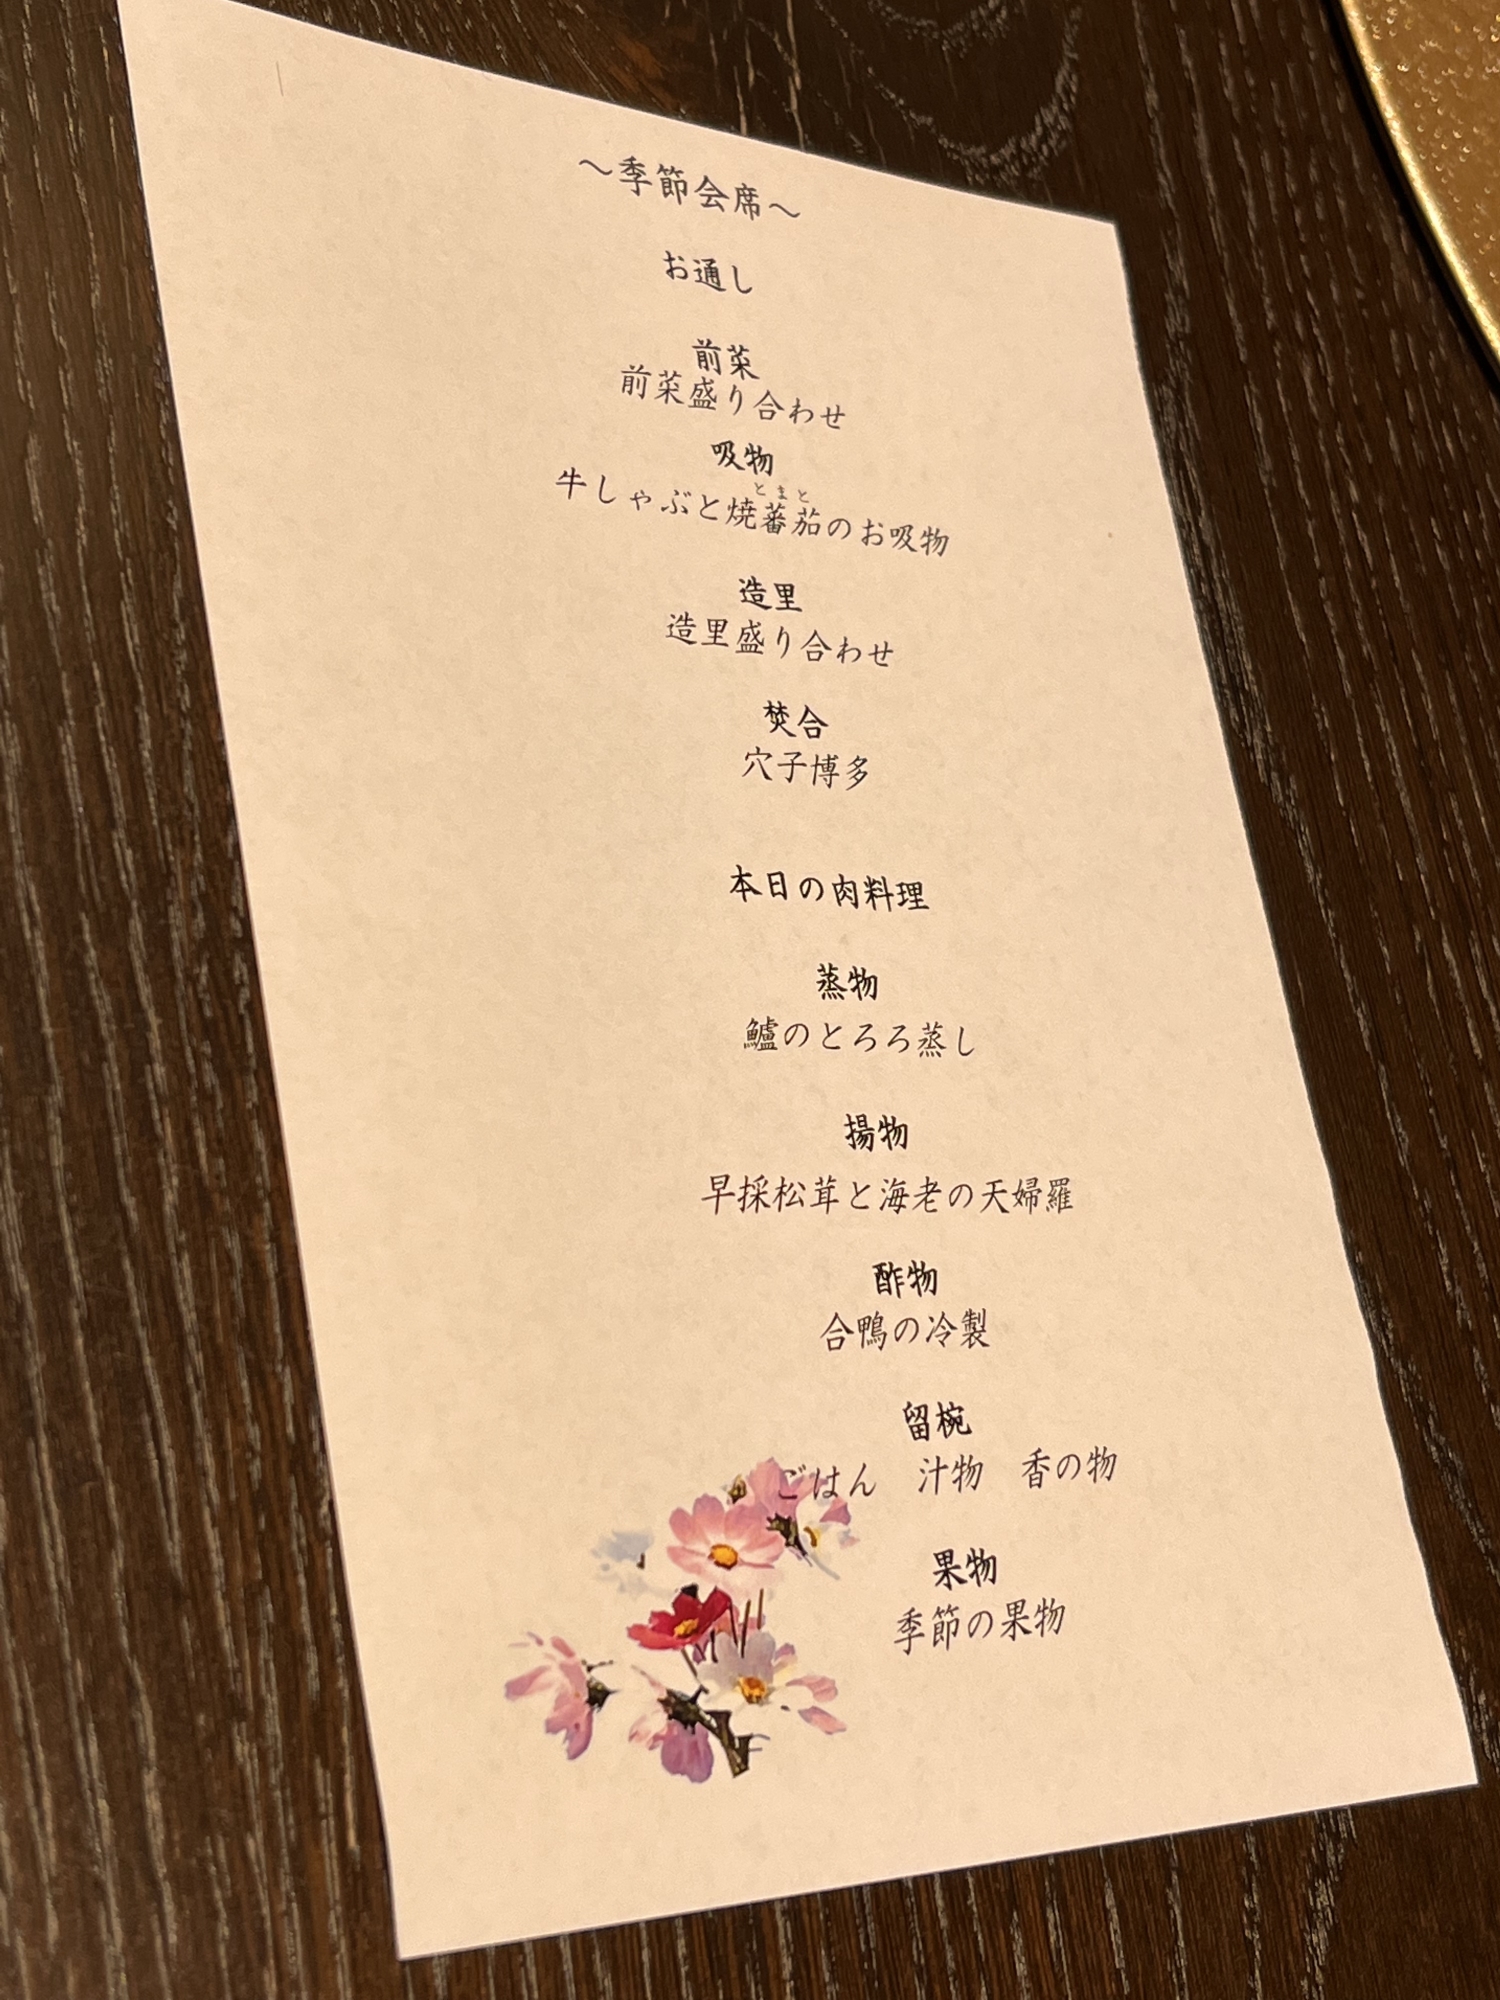 ～季節会席～
お通し
前菜
前菜盛り合わせ
吸物
とまと
牛しゃぶと焼蕃茄のお吸物
造里
造里盛り合わせ
焚合
穴子博多
本日の肉料理
蒸物
鱸のとろろ蒸し
揚物
早採松茸と海老の天婦羅
酢物
合鴨の冷製
留椀
ごはん　汁物　香の物
果物
季節の果物